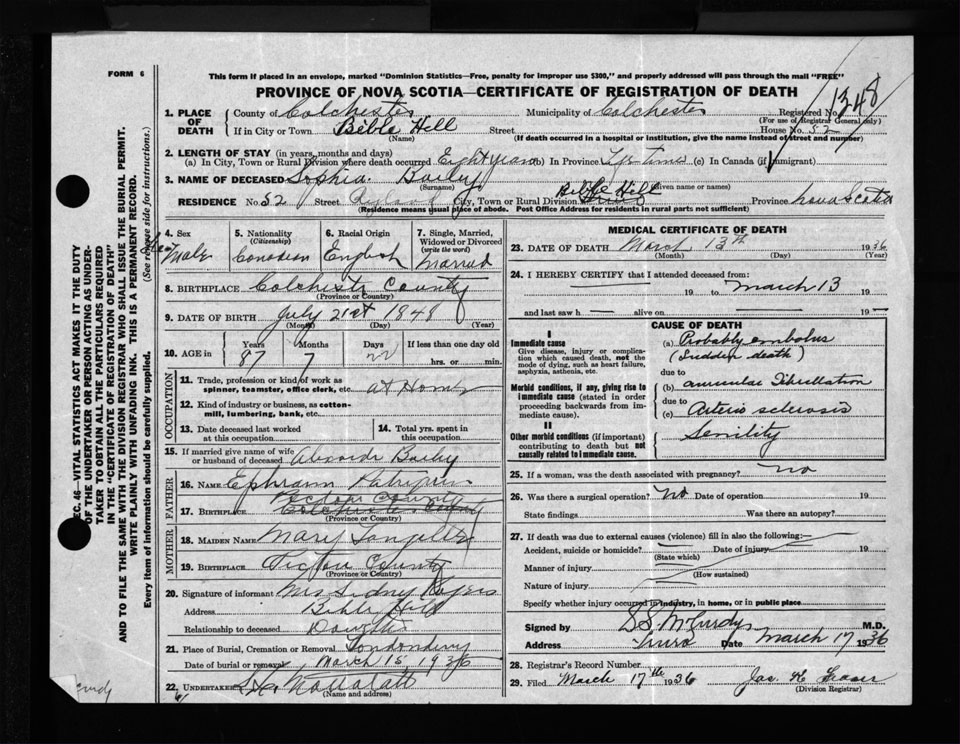 FORM 6
This form if placed in an envelope, marked "Dominion Statistics—Free, penalty for improper use $300," and properly addressed will pass through the mail "FREE"
PROVINCE OF NOVA SCOTIA—CERTIFICATE OF REGISTRATION OF DEATH
1348
Registered No.
(For use of Registrar General only)
1. PLACE OF DEATH
County of Colchester Municipality of Colchester
If in City or Town Bible Hill Street House No. 52
(Name) (If death occurred in a hospital or institution, give the name instead of street and number)
2. LENGTH OF STAY (in years, months and days)
(a) In City, Town or Rural Division where death occurred Eight years (b) In Province Life time (c) In Canada (if immigrant)
3. NAME OF DECEASED Sophia Baily
(Surname) (Given name or names)
RESIDENCE No. 52 Street City, Town or Rural Division Bible Hill Province Nova Scotia
(Residence means usual place of abode. Post Office Address for residents in rural parts not sufficient)
4. Sex
5. Nationality (Citizenship)
Canadian
6. Racial Origin
English
7. Single, Married, Widowed or Divorced (write the word)
Married
8. BIRTHPLACE Colchester County
(Province or Country)
9. DATE OF BIRTH July 21st 1848
(Month) (Day) (Year)
10. AGE in
Years Months Days If less than one day old
87 7 22 hrs. or min.
OCCUPATION
11. Trade, profession or kind of work as spinner, teamster, office clerk, etc. at Home
12. Kind of industry or business, as cotton-mill, lumbering, bank, etc.
13. Date deceased last worked at this occupation
14. Total yrs. spent in this occupation
15. If married give name of wife or husband of deceased Baily
FATHER
16. NAME Ephraim
17. BIRTHPLACE Colchester County
Pictou County
(Province or Country)
MOTHER
18. MAIDEN NAME Mary
19. BIRTHPLACE Pictou County
(Province or Country)
20. Signature of informant Mrs Sidney Rogers
Address Bible Hill
Relationship to deceased Daughter
21. Place of Burial, Cremation or Removal Londonderry
Date of burial or removal March 15, 1936
22. UNDERTAKER
(Name and address)
MEDICAL CERTIFICATE OF DEATH
23. DATE OF DEATH March 13th 1936
(Month) (Day) (Year)
24. I HEREBY CERTIFY that I attended deceased from:
19 to March 13 19
and last saw h alive on 19
CAUSE OF DEATH
I
Immediate cause
Give disease, injury or complication which caused death, not the mode of dying, such as heart failure, asphyxia, asthenia, etc.
(a) Probably embolus
(Sudden death)
due to
Morbid conditions, if any, giving rise to immediate cause (stated in order proceeding backwards from immediate cause).
(b) auricular Fibrillation
due to
(c) Arterio sclerosis
II
Other morbid conditions (if important) contributing to death but not causally related to immediate cause.
Senility
25. If a woman, was the death associated with pregnancy? no
26. Was there a surgical operation? No Date of operation 19
State findings Was there an autopsy?
27. If death was due to external causes (violence) fill in also the following:—
Accident, suicide or homicide? Date of injury 19
(State which)
Manner of injury
(How sustained)
Nature of injury
Specify whether injury occurred in industry, in home, or in public place
Signed by S.S. McCurdy M.D.
Address Truro Date March 17 1936
28. Registrar's Record Number
29. Filed March 17th 1936 Jas. K. Fraser
(Division Registrar)
SEC. 46—VITAL STATISTICS ACT MAKES IT THE DUTY
OF THE UNDERTAKER OR PERSON ACTING AS UNDER-
TAKER TO OBTAIN ALL THE PARTICULARS REQUIRED
IN THE "CERTIFICATE OF REGISTRATION OF DEATH"
AND TO FILE THE SAME WITH THE DIVISION REGISTRAR WHO SHALL ISSUE THE BURIAL PERMIT.
WRITE PLAINLY WITH UNFADING INK. THIS IS A PERMANENT RECORD.
Every item of information should be carefully supplied. (See reverse side for instructions.)